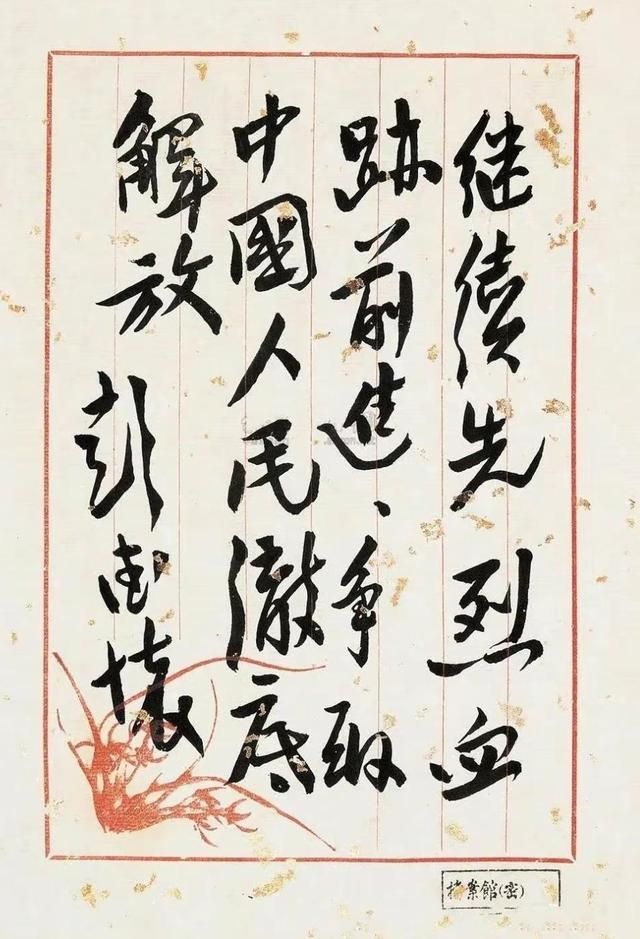 继续先烈血
跡前進、争取
中國人民澈底
解放 彭德懷
档案館(密)